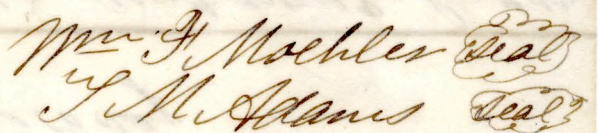 Wm F Moehler Seal
S M Adams Seal